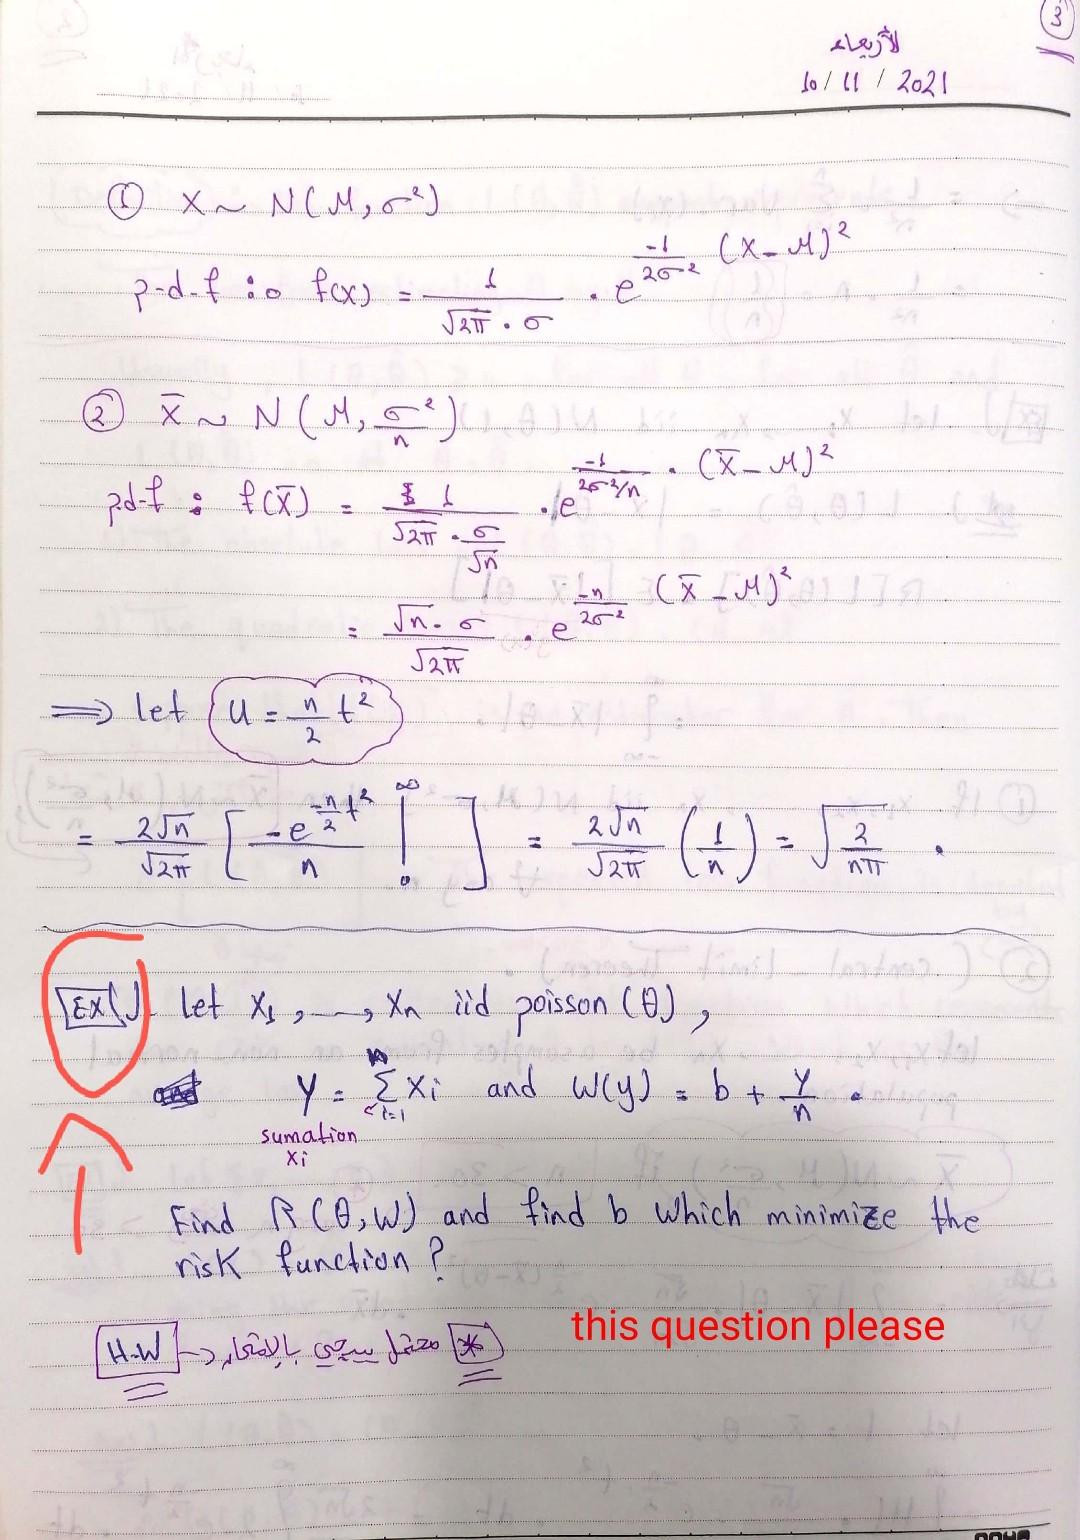 3
الأربعاء
10/11/2021
① X ~ N(M, σ²)
p-d-f : f(x) = 1/(√2π · σ) · e^(-1/2σ² (X-M)²)
② X̄ ~ N(M, σ²/n)
p.d-f : f(X̄) = 1/(√2π · σ/√n) · e^(-1/(2σ²/n) · (X̄-M)²)
= √n · σ/√2π · e^(-n/2σ² (X̄-M)²)
⟹ let u = n/2 t²
= 2√n/√2π [ -e^(-n/2 t²)/n |₀^∞ ] = 2√n/√2π (1/n) = √(2/nπ) .
EX let X₁, ..., Xn iid poisson (θ),
Y = Σᵢ₌₁ⁿ Xi and W(y) = b + Y/n .
sumation
Xi
Find R(θ, W) and find b which minimize the
risk function ?
this question please
H.W → محتمل يجي بالامتحان *